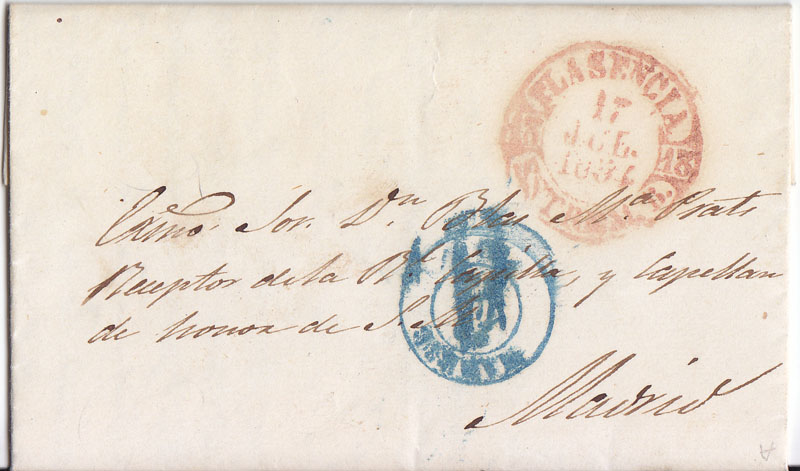 PLASENCIA
17
JUL.
Exmo. Sor. Dn Blas Ma. Prats
Receptor de la Rl. Capilla, y Capellan
de honor de S. M.
Madrid